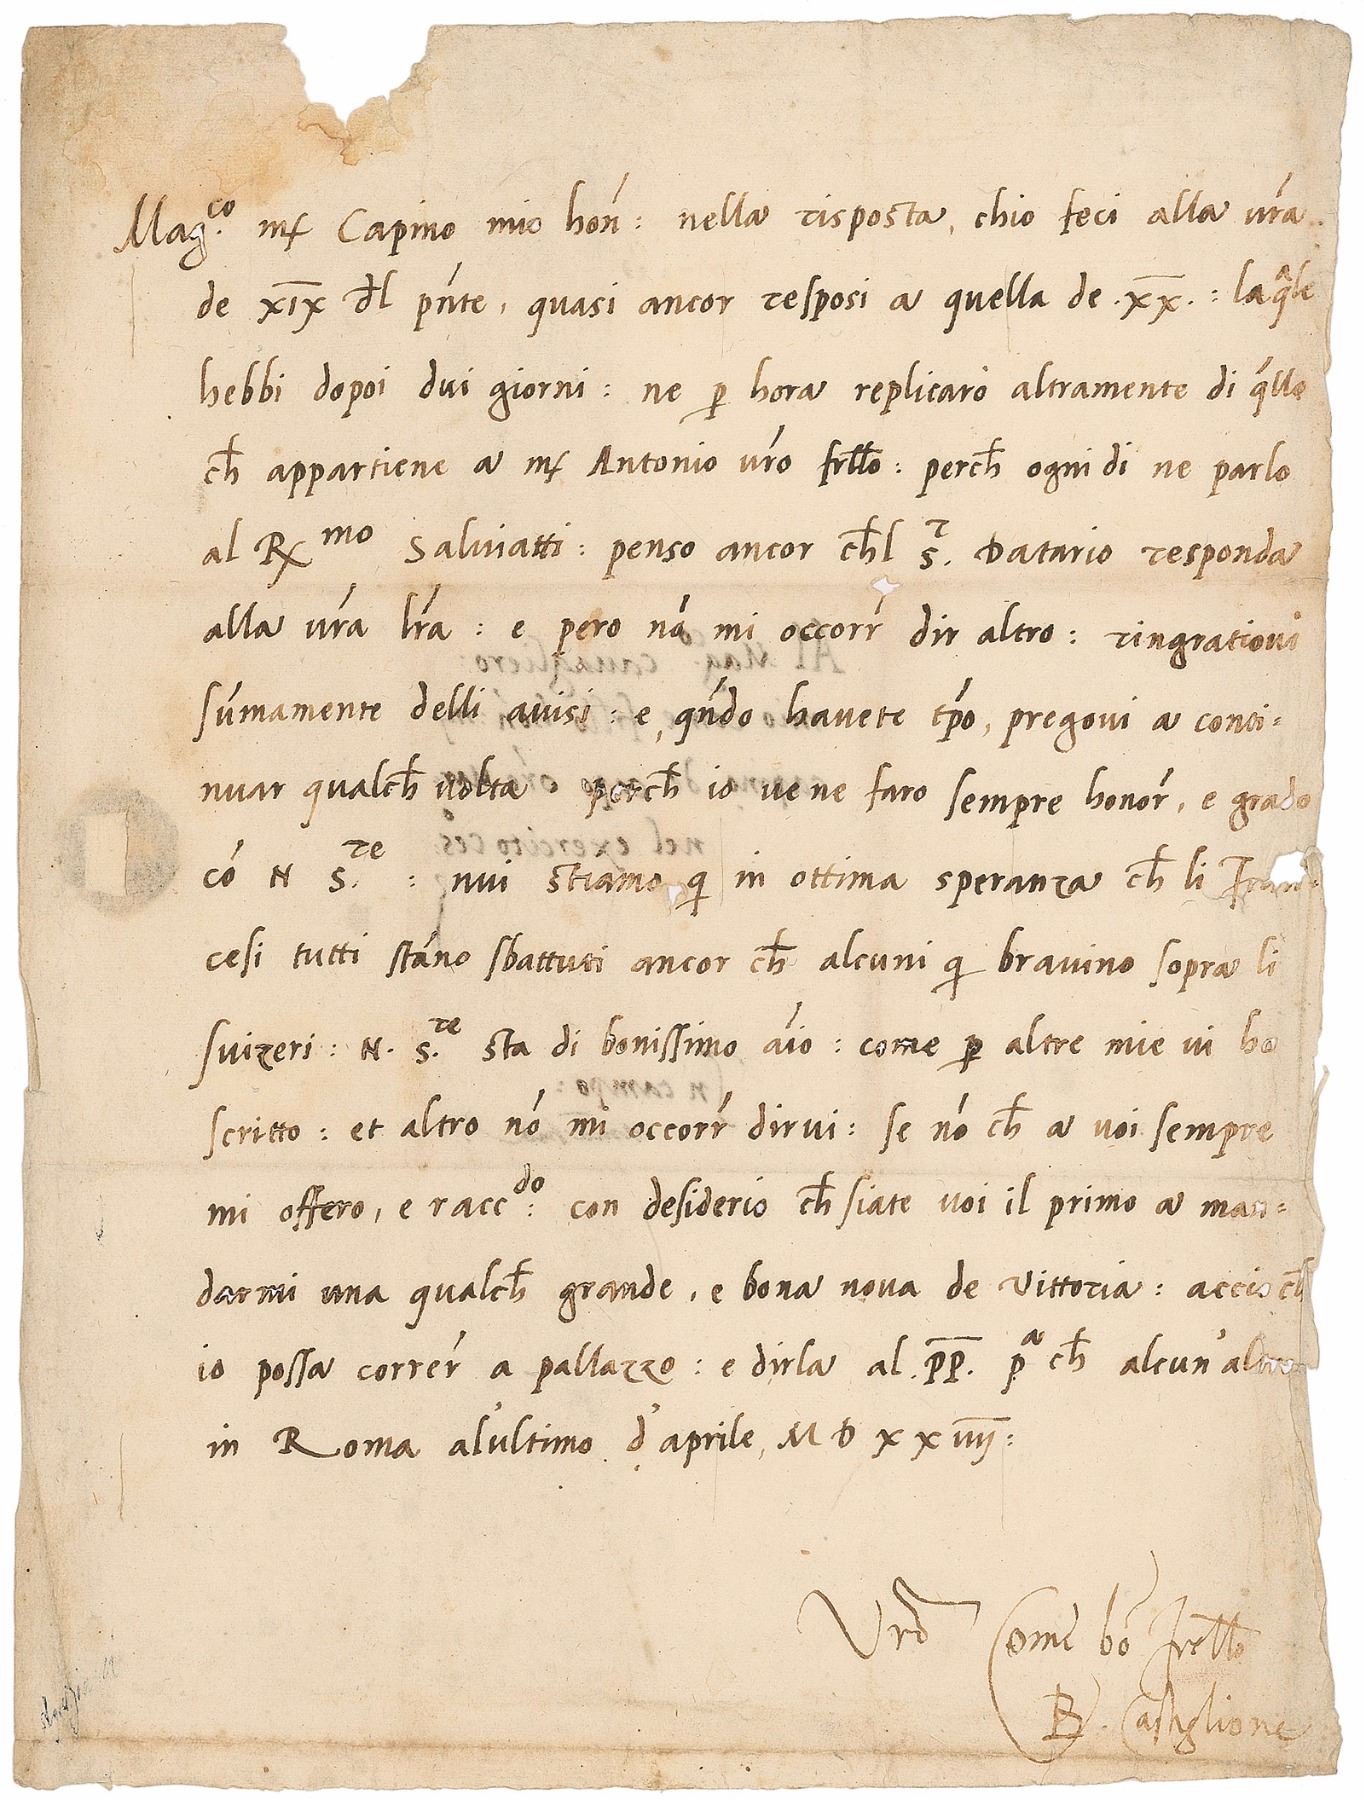 Mag.co mr Capino mio hon: nella risposta, chio feci alla vra
de XIX dl pnte, quasi ancor resposi a quella de .XX. : laqle
hebbi dopoi dui giorni : ne p hora replicarò altramente di qllo
ch appartiene a mr Antonio vro frllo : perch ogni di ne parlo
al Rmo Salviatti : penso ancor chl Sr. Datario responda
alla vra lra : e pero nō mi occorr dir altro : ringratiovi
sūmamente delli avisi : e, qñdo havete tpo, pregovi a conti=
nuar qualch volta . perch io ve ne faro sempre honor, e grado
cō N S.re : nui stiamo qi in ottima speranza ch li Fran
cesi tutti stāno sbattuti ancor ch alcuni qi bravino sopra li
svizeri : N. S.re sta di bonissimo aīo : come p altre mie vi ho
scritto : et altro nō mi occorr dirvi : se nō ch a voi sempre
mi offero, e racc.do : con desiderio ch siate voi il primo a man=
darmi una qualch grande, e bona nova de vittoria : accioch
io possa correr a pallazzo : e dirla al .PP. pa ch alcun'altro
in Roma al'ultimo d'aprile, MDXXiiij:
Vro Come bō frello
B. Castiglione
Al Mag.co cavagliero
nel exercito ces
In campo :